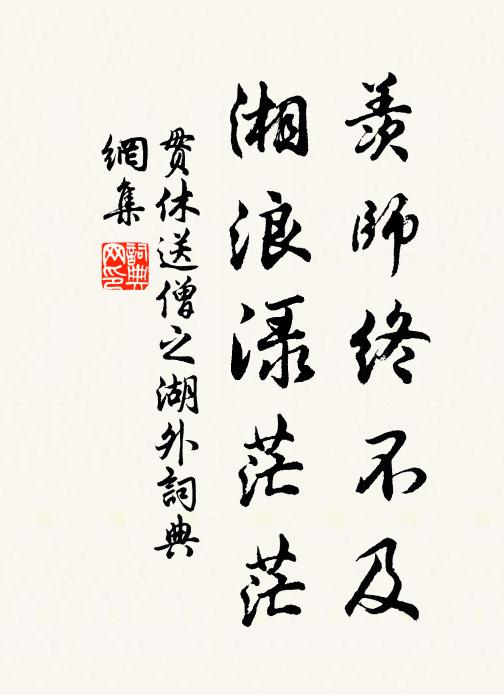 羨師終不及
湘浪渌茫茫
貫休送僧之湖外詞典
網集
詞典
网印